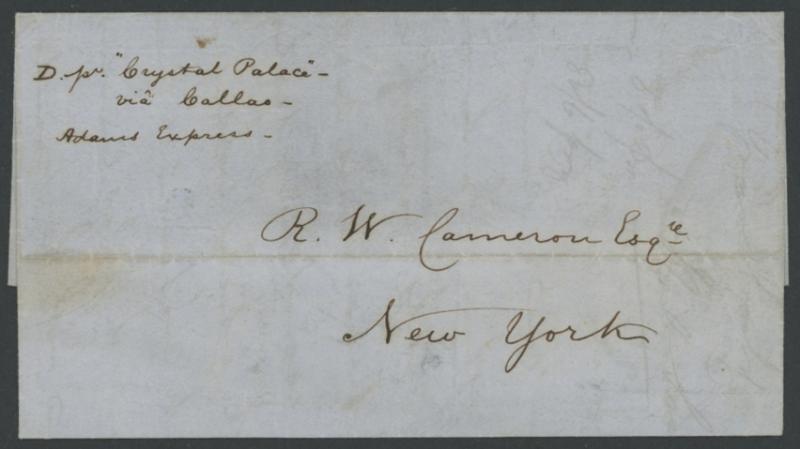 D. pr. "Crystal Palace" -
viâ Callao -
Adams Express -
R. W. Cameron Esqre
New York